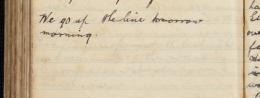 We go up the line tomorrow
morning.